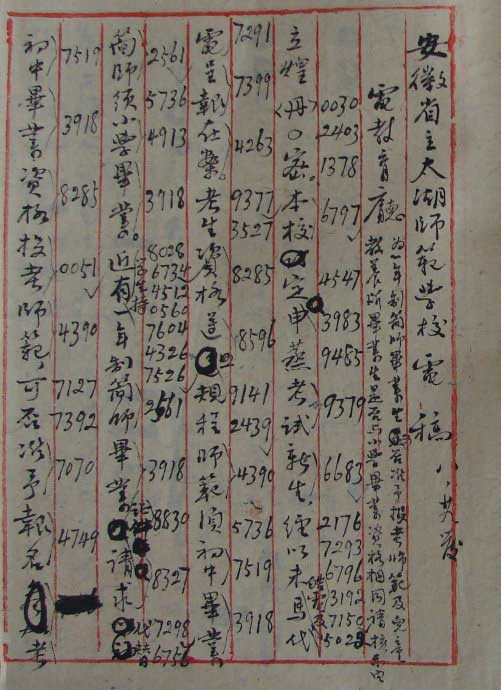 安徽省立太湖師範學校電稿 八、
電教育廳
為一年制簡師畢業生可否准予投考師範及
畢業生是否与小學畢業資格相同請核示由
0030 2403 1378 6797 4547 3983 9485 9379 6683 2176 7293 6796 3192 7150 5028
立煌 密。本校定申蒸考試新生。經以未馬代
7291 7399 4263 9377 3527 8285 8596 9141 2439 4390 5736 7519 3918
電呈報仕案。考生資格遵照規程師範須初中畢業
2561 5736 4913 3918 8028 6734 4512 0560 7604 4326 7526 2561 3918 8830 8327 7298 6756
簡師須小學畢業。近有一年制簡師畢業請求
7519 3918 8285 0051 4390 7127 7392 7070 4749
初中畢業資格投考師範，可否准予報名考